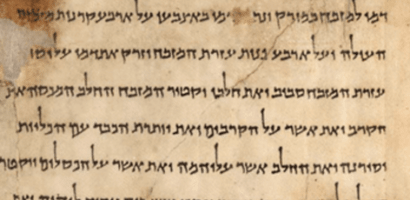 דמו למזבח במזרק באצבעו על ארבע קרנות
העולה ועל ארבע פנות עזרת המזבח וזרק את דמו על יסוד
עזרת המזבח סביב ואת חלבו יקטיר המזבחה החלב המכסה את
הקרב ואת אשר על הקרבים ואת יותרת הכבד עם הכליות
יסירנה ואת החלב אשר עליהמה ואת אשר על הכסלים ויקטר